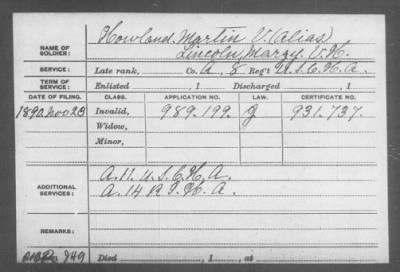 Howland, Martin V. (Alias)
NAME OF SOLDIER: Lincoln, Marcy V. H.
SERVICE: Late rank, Co. A, 8 Reg't U.S.C.H.A.
TERM OF SERVICE: Enlisted , 1 Discharged , 1
DATE OF FILING. CLASS. APPLICATION NO. LAW. CERTIFICATE NO.
1890 Nov 28 Invalid, 989.199. G 931.737.
Widow,
Minor,
A. 11. U.S.C.H.A.
ADDITIONAL SERVICES: A. 14 R.I.H.A.
REMARKS:
Died , 1 , at